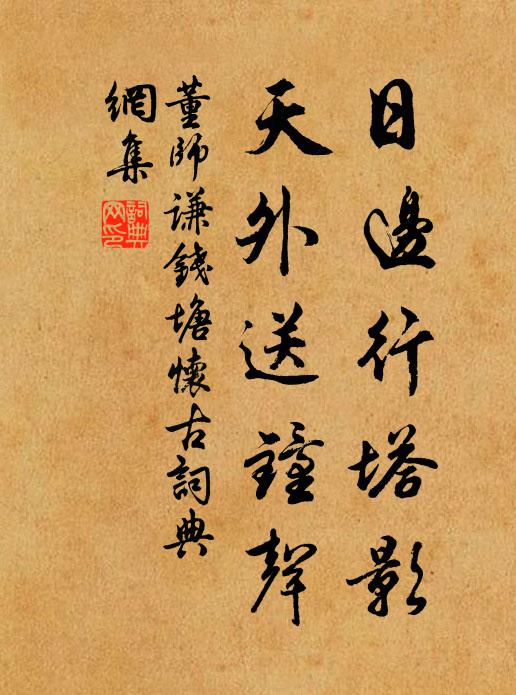 日邊行塔影
天外送鐘聲
董師謙錢塘懷古詞典
網集
詞典網印